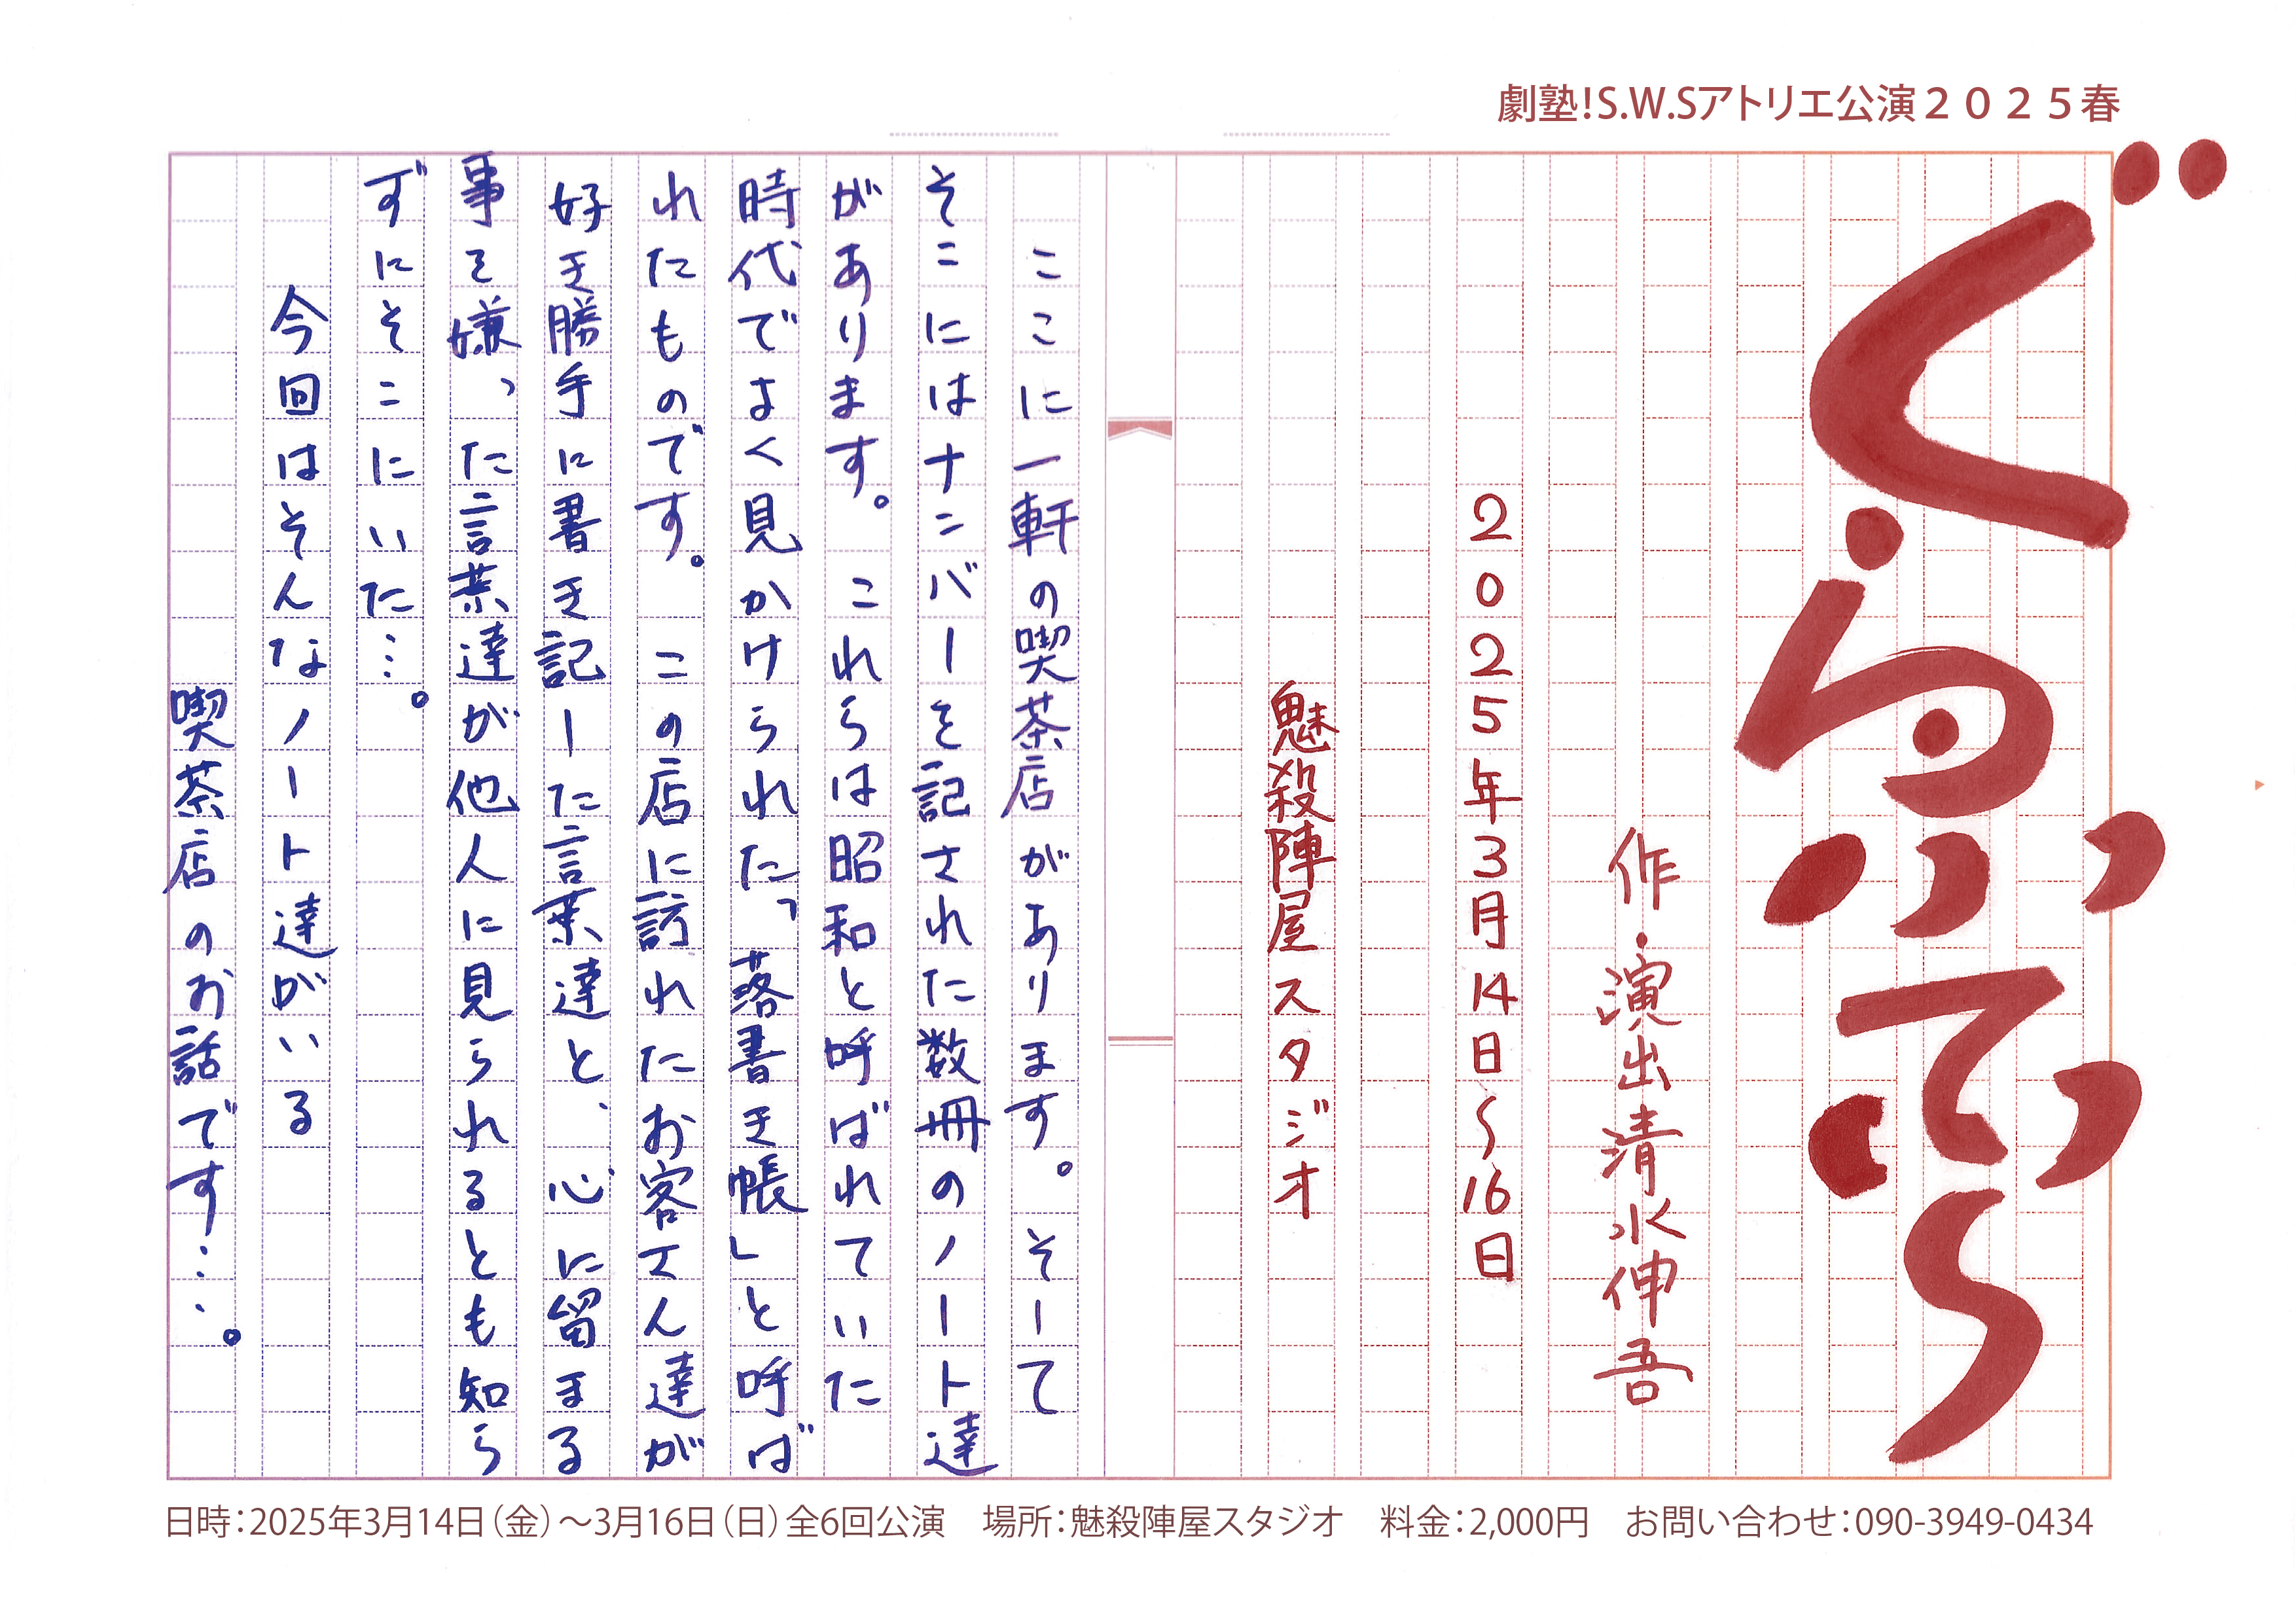 劇塾！S.W.Sアトリエ公演２０２５春
ぐらふてぃ～
作・演出 清水伸吾
2025年3月14日～16日
魅殺陣屋スタジオ
ここに一軒の喫茶店があります。そして
そこにはナンバーを記された数冊のノート達
があります。これらは昭和と呼ばれていた
時代でよく見かけられた「落書き帳」と呼ば
れたものです。この店に訪れたお客さん達が
好き勝手に書き記した言葉達と、心に留まる
事を嫌った言葉達が他人に見られるとも知ら
ずにそこにいた…。
今回はそんなノート達がいる
喫茶店のお話です……。
日時：2025年3月14日（金）～3月16日（日）全6回公演　場所：魅殺陣屋スタジオ　料金：2,000円　お問い合わせ：090-3949-0434